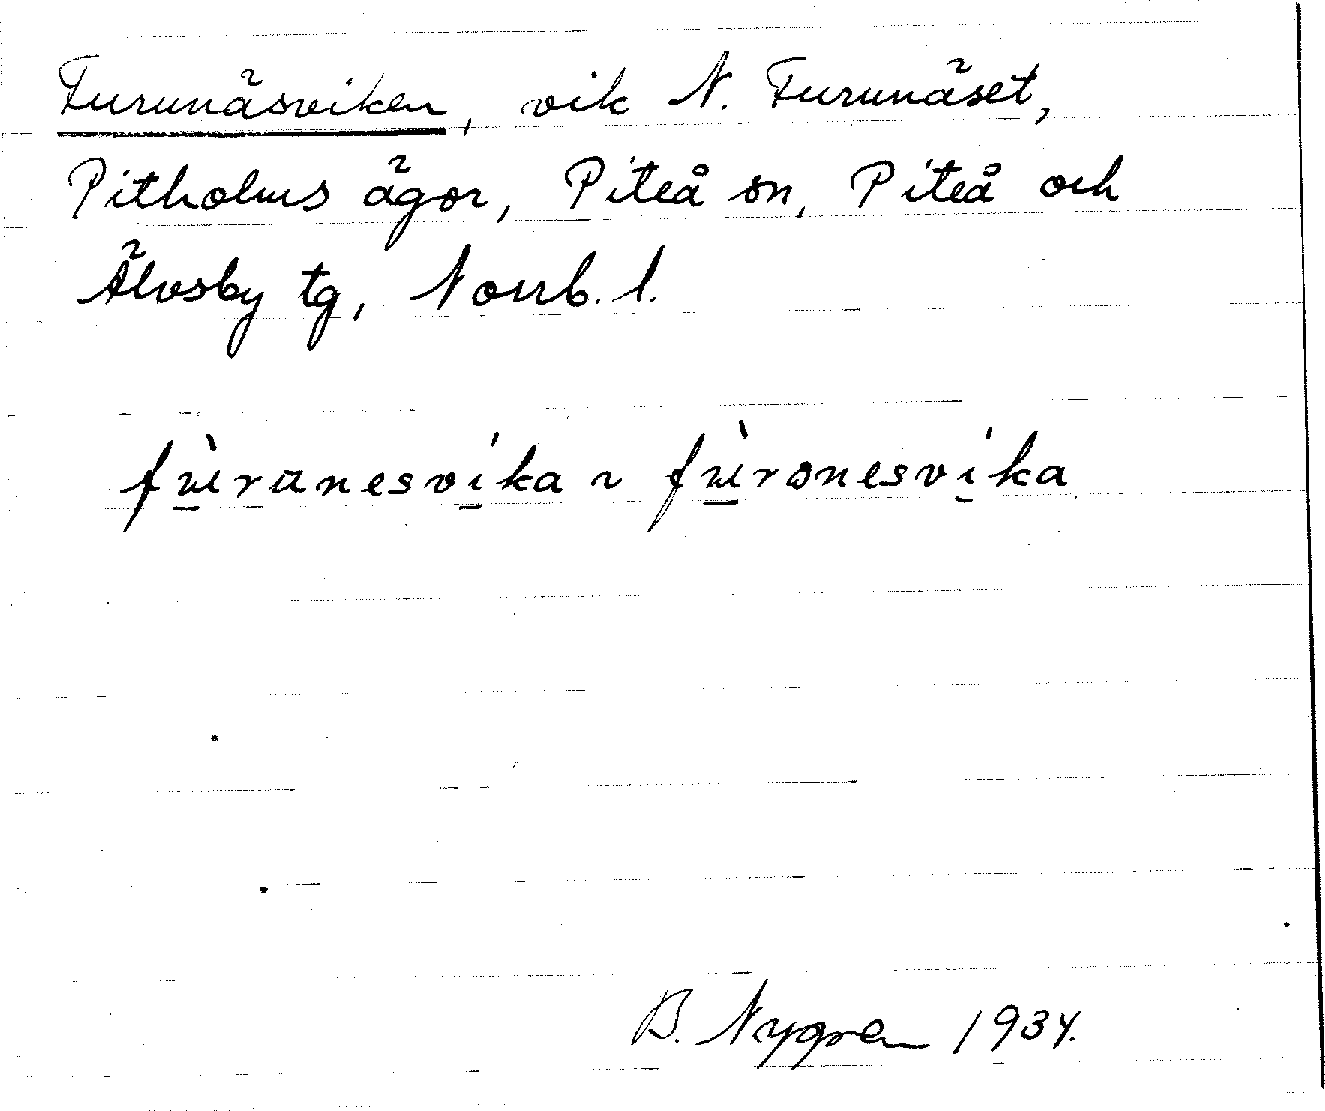 Furunäsviken, vik N. Furunäset,
Pitholms ägor, Piteå sn, Piteå och
Älvsby tg, Norrb. l.
fù̲ranesví̲ka ~ fù̲rɷnesví̲ka
B. Nygren 1934.